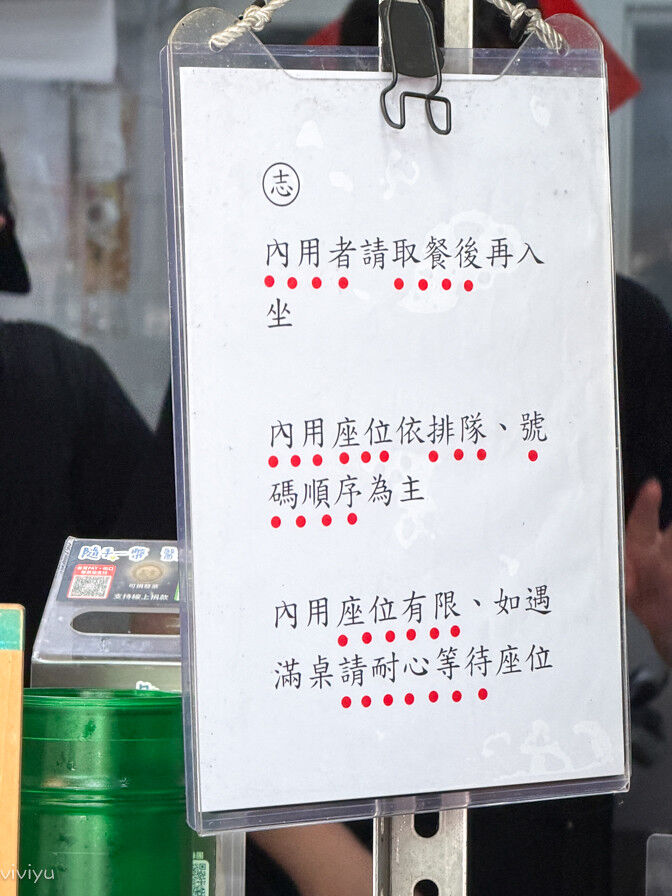 志
內用者請取餐後再入
坐
內用座位依排隊、號
碼順序為主
內用座位有限、如遇
滿桌請耐心等待座位
隨手一幣 醫
可捐發票
支持線上捐款
viviyu